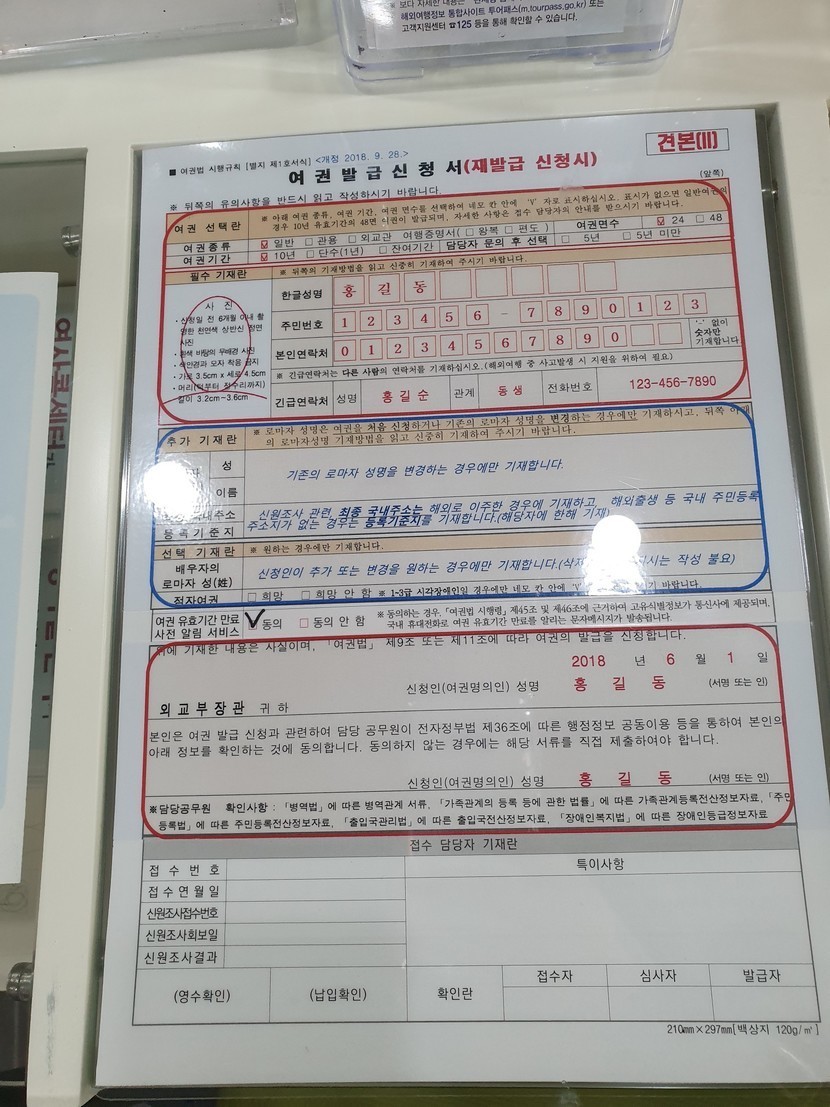 ※ 보다 자세한 내용은
해외여행정보 통합사이트 투어패스(m.tourpass.go.kr) 또는
고객지원센터 ☎125 등을 통해 확인할 수 있습니다.
견본(Ⅱ)
■ 여권법 시행규칙 [별지 제1호서식] <개정 2018. 9. 28.>
여 권 발 급 신 청 서(재발급 신청시)
(앞쪽)
※ 뒤쪽의 유의사항을 반드시 읽고 작성하시기 바랍니다.
여권 선택란
※ 아래 여권 종류, 여권 기간, 여권 면수를 선택하여 네모 칸 안에 'V' 자로 표시하십시오. 표시가 없으면 일반여권의
경우 10년 유효기간의 48면 여권이 발급되며, 자세한 사항은 접수 담당자의 안내를 받으시기 바랍니다.
여권종류 ☑ 일반 □ 관용 □ 외교관 여행증명서( □ 왕복 □ 편도 ) 여권면수 ☑ 24 □ 48
여권기간 ☑ 10년 □ 단수(1년) □ 잔여기간 담당자 문의 후 선택 □ 5년 □ 5년 미만
필수 기재란 ※ 뒤쪽의 기재방법을 읽고 신중히 기재하여 주시기 바랍니다.
사 진
• 신청일 전 6개월 이내 촬
영한 천연색 상반신 정면
사진
• 흰색 바탕의 무배경 사진
• 색안경과 모자 착용 금지
• 가로 3.5cm x 세로 4.5cm
• 머리(턱부터 정수리까지)
길이 3.2cm-3.6cm
한글성명 홍 길 동
주민번호 1 2 3 4 5 6 - 7 8 9 0 1 2 3
본인연락처 0 1 2 3 4 5 6 7 8 9 0
'-' 없이
숫자만
기재합니다
※ 긴급연락처는 다른 사람의 연락처를 기재하십시오.(해외여행 중 사고발생 시 지원을 위하여 필요)
긴급연락처 성명 홍 길 순 관계 동 생 전화번호 123-456-7890
추가 기재란
※ 로마자 성명은 여권을 처음 신청하거나 기존의 로마자 성명을 변경하는 경우에만 기재하시고, 뒤쪽
의 로마자성명 기재방법을 읽고 신중히 기재하여 주시기 바랍니다.
성
이름
기존의 로마자 성명을 변경하는 경우에만 기재합니다.
국내주소
등 록 기 준 지
신원조사 관련, 최종 국내주소는 해외로 이주한 경우에 기재하고, 해외출생 등 국내 주민등록
주소지가 없는 경우는 등록기준지를 기재합니다.(해당자에 한해 기재)
선택 기재란 ※ 원하는 경우에만 기재합니다.
배우자의
로마자 성(姓)
신청인이 추가 또는 변경을 원하는 경우에만 기재합니다.(삭제 시는 작성 불요)
점자여권 □ 희망 □ 희망 안 함 ※ 1-3급 시각장애인일 경우에만 네모 칸 안에 'V' 바랍니다.
여권 유효기간 만료
사전 알림 서비스
☑ 동의 □ 동의 안 함
※ 동의하는 경우, 「여권법 시행령」 제45조 및 제46조에 근거하여 고유식별정보가 통신사에 제공되며,
국내 휴대전화로 여권 유효기간 만료를 알리는 문자메시지가 발송됩니다.
위에 기재한 내용은 사실이며, 「여권법」 제9조 또는 제11조에 따라 여권의 발급을 신청합니다.
2018 년 6 월 1 일
신청인(여권명의인) 성명 홍 길 동 (서명 또는 인)
외교부장관 귀 하
본인은 여권 발급 신청과 관련하여 담당 공무원이 전자정부법 제36조에 따른 행정정보 공동이용 등을 통하여 본인의
아래 정보를 확인하는 것에 동의합니다. 동의하지 않는 경우에는 해당 서류를 직접 제출하여야 합니다.
신청인(여권명의인) 성명 홍 길 동 (서명 또는 인)
※담당공무원 확인사항 : 「병역법」에 따른 병역관계 서류, 「가족관계의 등록 등에 관한 법률」에 따른 가족관계등록전산정보자료, 「주민
등록법」에 따른 주민등록전산정보자료, 「출입국관리법」에 따른 출입국전산정보자료, 「장애인복지법」에 따른 장애인등급정보자료
접수 담당자 기재란
접 수 번 호
특이사항
접수연월일
신원조사접수번호
신원조사회보일
신원조사결과
(영수확인) (납입확인) 확인란 접수자 심사자 발급자
210㎜×297㎜[백상지 120g/㎡]